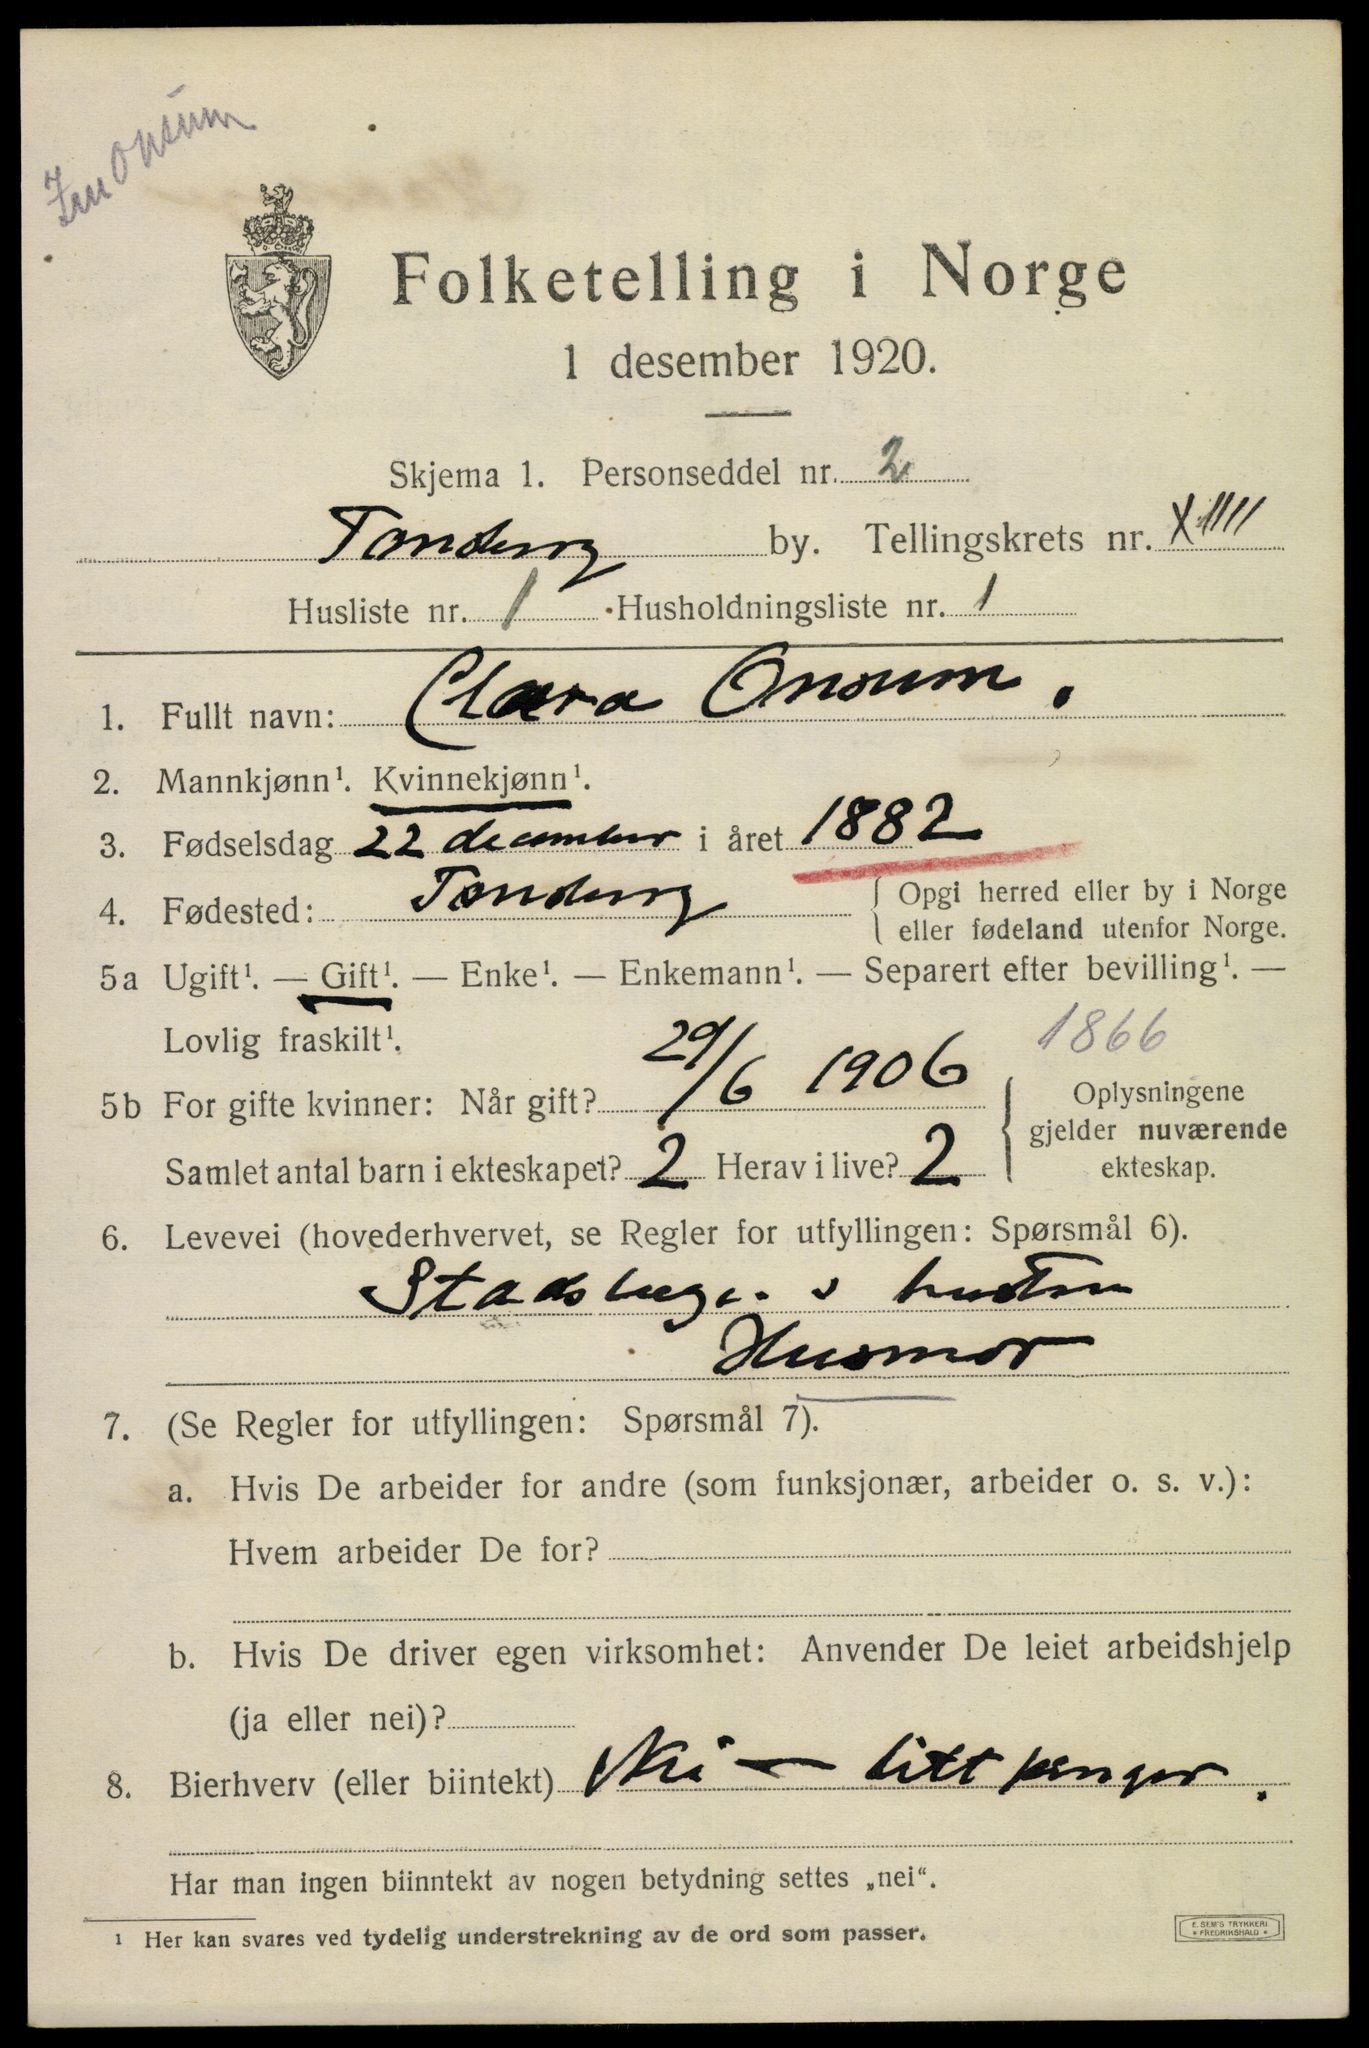 Fru Onsum
Folketelling i Norge
1 desember 1920.
Skjema 1. Personseddel nr. 2
Tønsberg by. Tellingskrets nr. XIIII
Husliste nr. 1 Husholdningsliste nr. 1
1. Fullt navn: Clara Onsum.
2. Mannkjønn¹. Kvinnekjønn¹.
3. Fødselsdag 22 december i året 1882
4. Fødested: Tønsberg { Opgi herred eller by i Norge
eller fødeland utenfor Norge.
5a Ugift¹. — Gift¹. — Enke¹. — Enkemann¹. — Separert efter bevilling¹. —
Lovlig fraskilt¹.
1866
5b For gifte kvinner: Når gift? 29/6 1906 { Oplysningene
gjelder nuværende
Samlet antal barn i ekteskapet? 2 Herav i live? 2 ekteskap.
6. Levevei (hovederhvervet, se Regler for utfyllingen: Spørsmål 6).
Stadslæge s hustru
Husmor
7. (Se Regler for utfyllingen: Spørsmål 7).
a. Hvis De arbeider for andre (som funksjonær, arbeider o. s. v.):
Hvem arbeider De for?
b. Hvis De driver egen virksomhet: Anvender De leiet arbeidshjelp
(ja eller nei)?
8. Bierhverv (eller biintekt) Nei — litt penger.
Har man ingen biinntekt av nogen betydning settes „nei“.
¹ Her kan svares ved tydelig understrekning av de ord som passer.
E. SEM'S TRYKKERI
* FREDRIKSHALD *